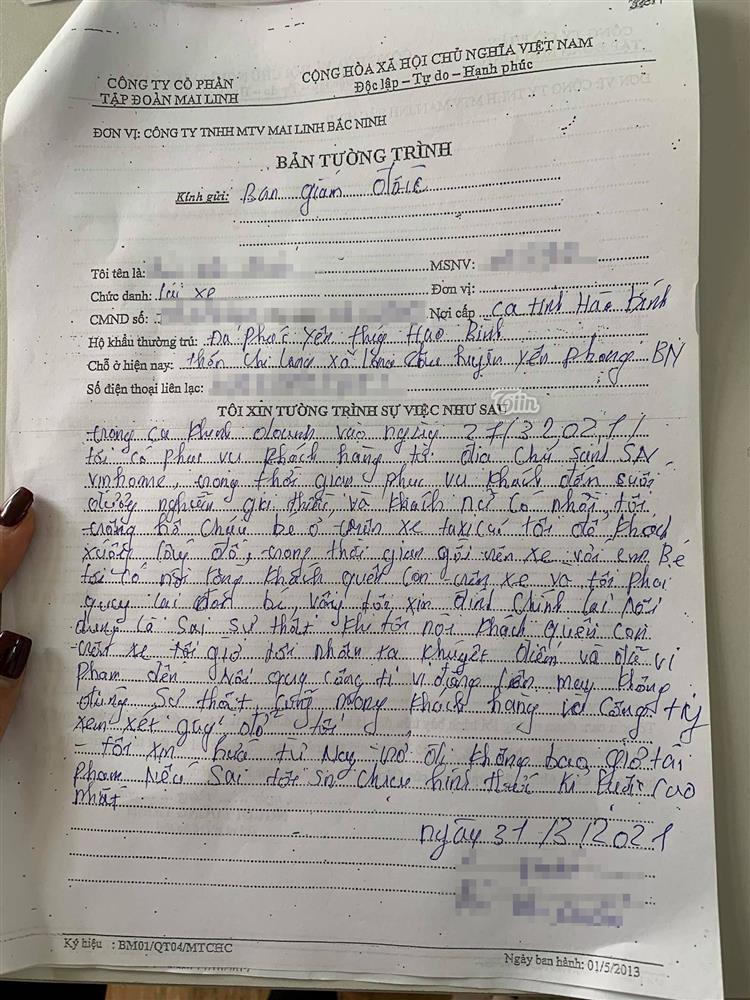 CÔNG TY CỔ PHẦN
TẬP ĐOÀN MAI LINH
CỘNG HÒA XÃ HỘI CHỦ NGHĨA VIỆT NAM
Độc lập – Tự do – Hạnh phúc
ĐƠN VỊ: CÔNG TY TNHH MTV MAI LINH BẮC NINH
BẢN TƯỜNG TRÌNH
Kính gửi: Ban giám đốc
Tôi tên là: MSNV:
Chức danh: lái xe Đơn vị:
CMND số: Nơi cấp CA tỉnh Hòa Bình
Hộ khẩu thường trú: Đa Phúc Yên Thủy Hòa Bình
Chỗ ở hiện nay: thôn Chi Long xã Long Châu huyện Yên Phong BN
Số điện thoại liên lạc:
TÔI XIN TƯỜNG TRÌNH SỰ VIỆC NHƯ SAU
Tiin
trong ca kinh doanh vào ngày 27/3/2021
tôi có phục vụ khách hàng từ địa chỉ
vinhome, trong thời gian phục vụ khách đến cuối
đường nguyễn gia thiều, và khách nữ có nhờ tôi
trông hộ cháu bé ở trên xe taxi tôi để khách
xuống lấy đồ, trong thời gian ngồi trên xe với em Bé
tôi có nói rằng khách quên con trên xe và tôi phải
quay lại đón bé, vậy tôi xin đính chính lại nội
dung là sai sự thật khi tôi nói khách quên con
trên xe tôi giờ tôi nhận ra khuyết điểm và đã vi
phạm đến nội quy công ti vì đăng lên mạng không
đúng sự thật, mong khách hàng và Công ty
xem xét giúp đỡ tôi
- tôi xin hứa từ nay trở đi không bao giờ tái
phạm nếu sai tôi xin chịu hình thức kỉ luật cao
nhất
ngày 31/3/2021
Ký hiệu : BM01/QT04/MTCHC
Ngày ban hành: 01/5/2013